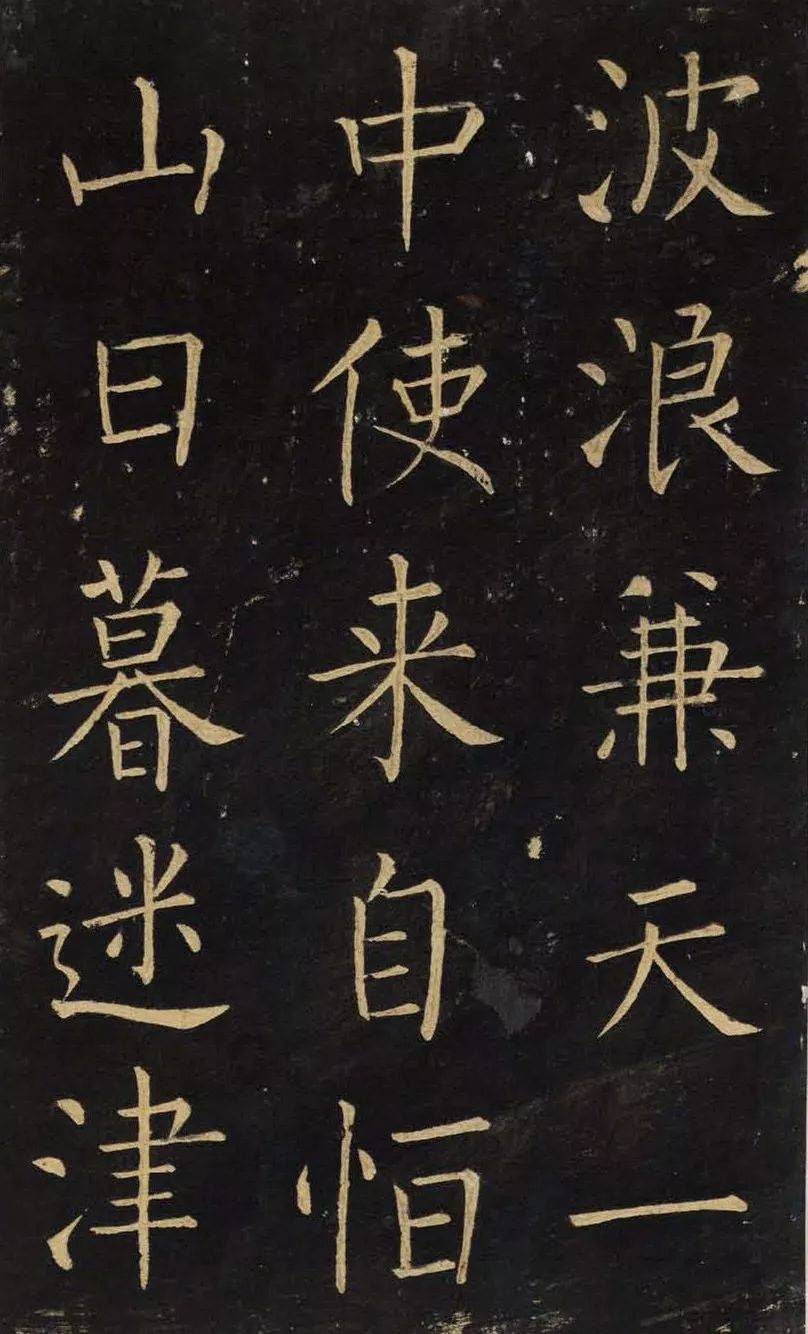 波浪兼天一
中使来自恒
山日暮迷津